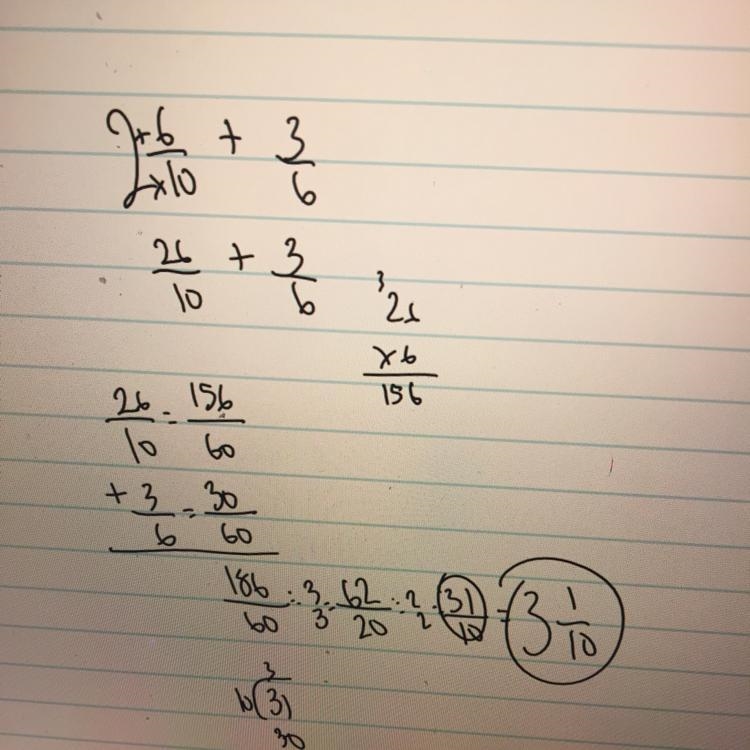 2 + 6/×10 + 3/6
26/10 + 3/6
3
26
×6
156
26/10 = 156/60
+ 3/6 = 30/60
186/60 ÷ 3/3 = 62/20 ÷ 2/2 = 31/10 = 3 1/10
3
10(31
30